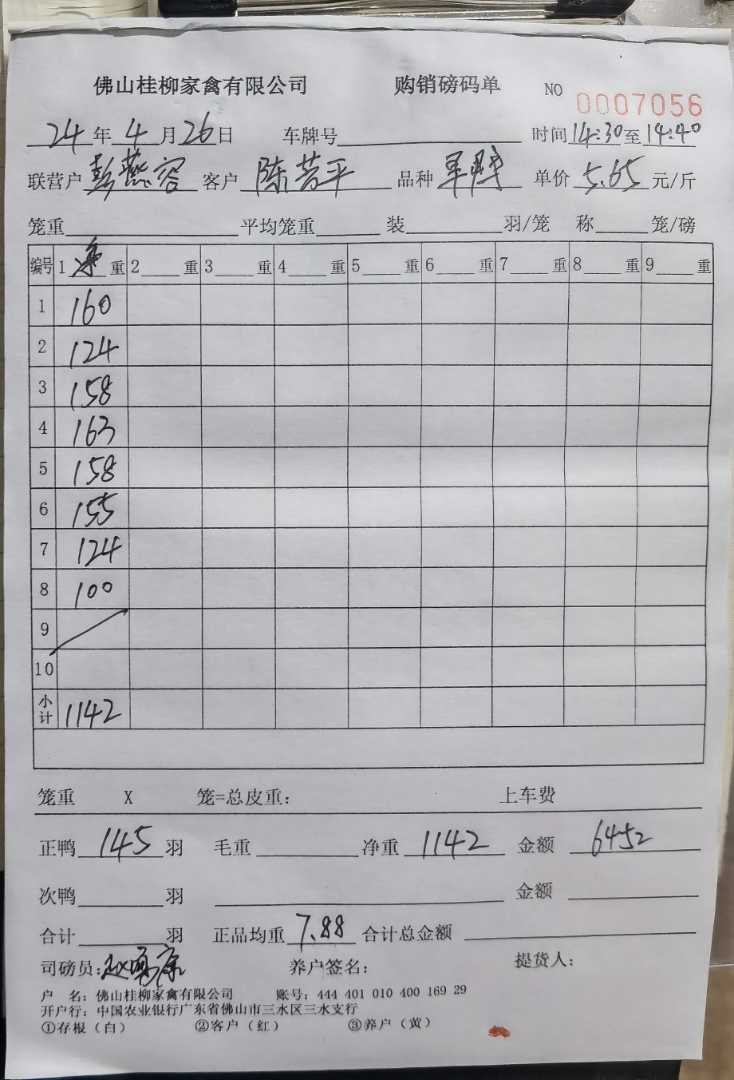 佛山桂柳家禽有限公司 购销磅码单 NO 0007056
24年4月26日 车牌号 时间14:30至14:40
联营户 彭燕容 客户 陈芸平 品种 单价 5.65 元/斤
笼重 平均笼重 装 羽/笼 称 笼/磅
编号 1 净 重 2 重 3 重 4 重 5 重 6 重 7 重 8 重 9 重
1 160
2 124
3 158
4 163
5 158
6 155
7 124
8 100
9
10
小计 1142
笼重 X 笼=总皮重: 上车费
正鸭 145 羽 毛重 净重 1142 金额 6452
次鸭 羽 金额
合计 羽 正品均重 7.88 合计总金额
司磅员: 养户签名: 提货人:
户 名: 佛山桂柳家禽有限公司 账号: 444 401 010 400 169 29
开户行: 中国农业银行广东省佛山市三水区三水支行
①存根(白) ②客户(红) ③养户(黄)